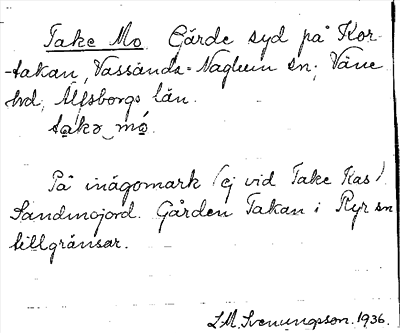 Take Mo. Gärde syd på Kor-
takan, Vassända-Naglum sn; Väne
hd, Älfsborgs län.
ta̱kə mó̱
På inägomark (ej vid Take Kas).
Sandmojord. Gården Takan i Ryr sn
tillgränsar.
L.M. Svenungsson. 1936.